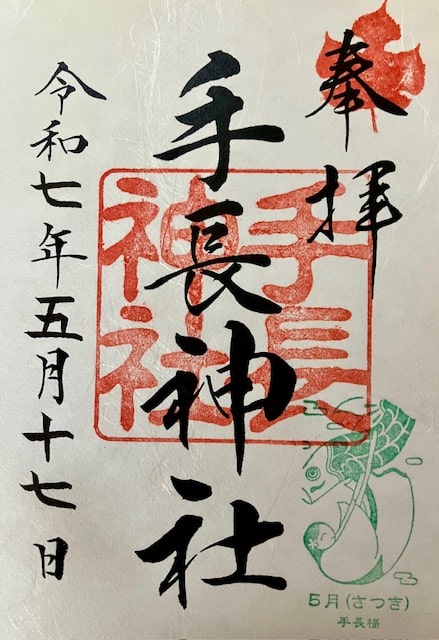 奉拝
手長神社
手長
神社
令和七年五月十七日
5月(さつき)
手長様